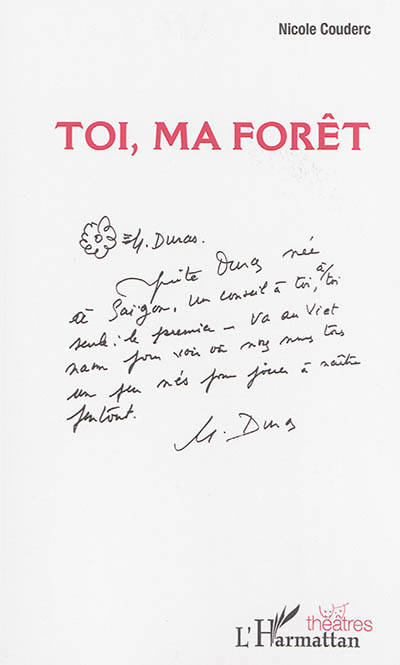 Nicole Couderc
TOI, MA FORÊT
M. Duras.
Duras née
à Saigon, un conseil à toi, à toi
seul : le premier – va au Viet
nam pour voir où nous nous tous
un peu nés pour jouer à naître
partout.
M. Duras
théâtres
L'Harmattan